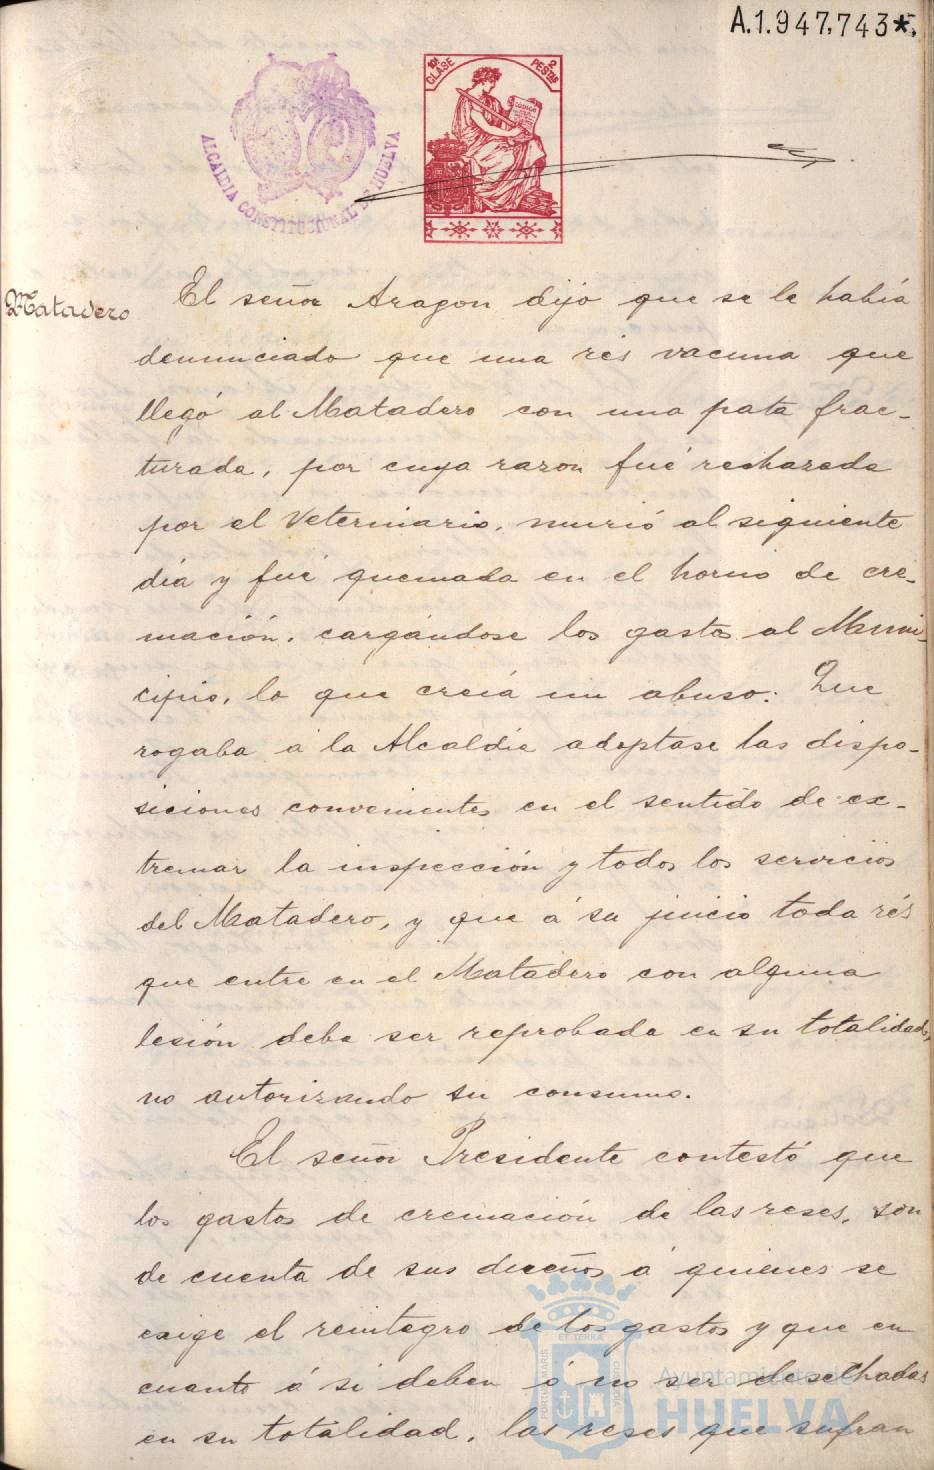 A.1.947,743*
10ª CLASE
2 PESTAS
CODIGO
ALCALDIA CONSTITUCIONAL DE HUELVA
Matadero
El señor Aragon dijo que se le había
denunciado que una rés vacuna que
llegó al Matadero con una pata frac-
turada, por cuya razon fué rechazada
por el Veterinario, murió al siguiente
día y fué quemada en el horno de cre-
mación, cargándose los gastos al Muni-
cipio, lo que creía un abuso: Que
rogaba á la Alcaldía adoptase las dispo-
siciones convenientes en el sentido de ex-
tremar la inspección y todos los servicios
del Matadero, y que á su juicio toda rés
que entre en el Matadero con alguna
lesión debe ser reprobada en su totalidad,
no autorizando su consumo.
El señor Presidente contestó que
los gastos de cremación de las reses, son
de cuenta de sus dueños á quienes se
exige el reintegro de los gastos y que en
cuanto á si deben ó no ser desechadas
en su totalidad, las reses que sufran
ET TERRÆ
PORTUS MARIS
CUSTODIA
Ayuntamiento de
HUELVA